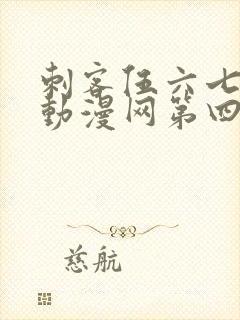 刺客伍六七
動漫网第四
慈航